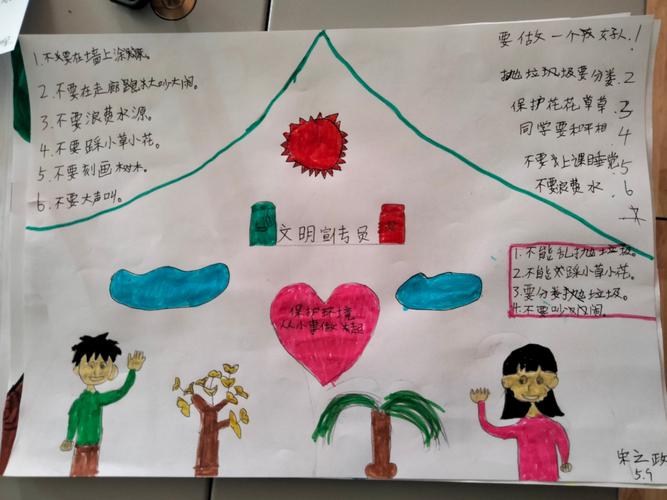 1.不要在墙上涂鸦。
2.不要在走廊跑大吵大闹。
3.不要浪费水源。
4.不要踩小草小花。
5.不要刻画树木。
6.不要大声叫。
要做一个好人.1
抛垃圾要分类.2
保护花花草草.3
同学要和平相.4
不要上课睡觉.5
不要浪费水.6
文明宣传员
保护环境
从小事做起
1.不能乱抛垃圾。
2.不能踩小草小花。
3.要分类抛垃圾。
4.不要吵闹。
宋之政
5.9